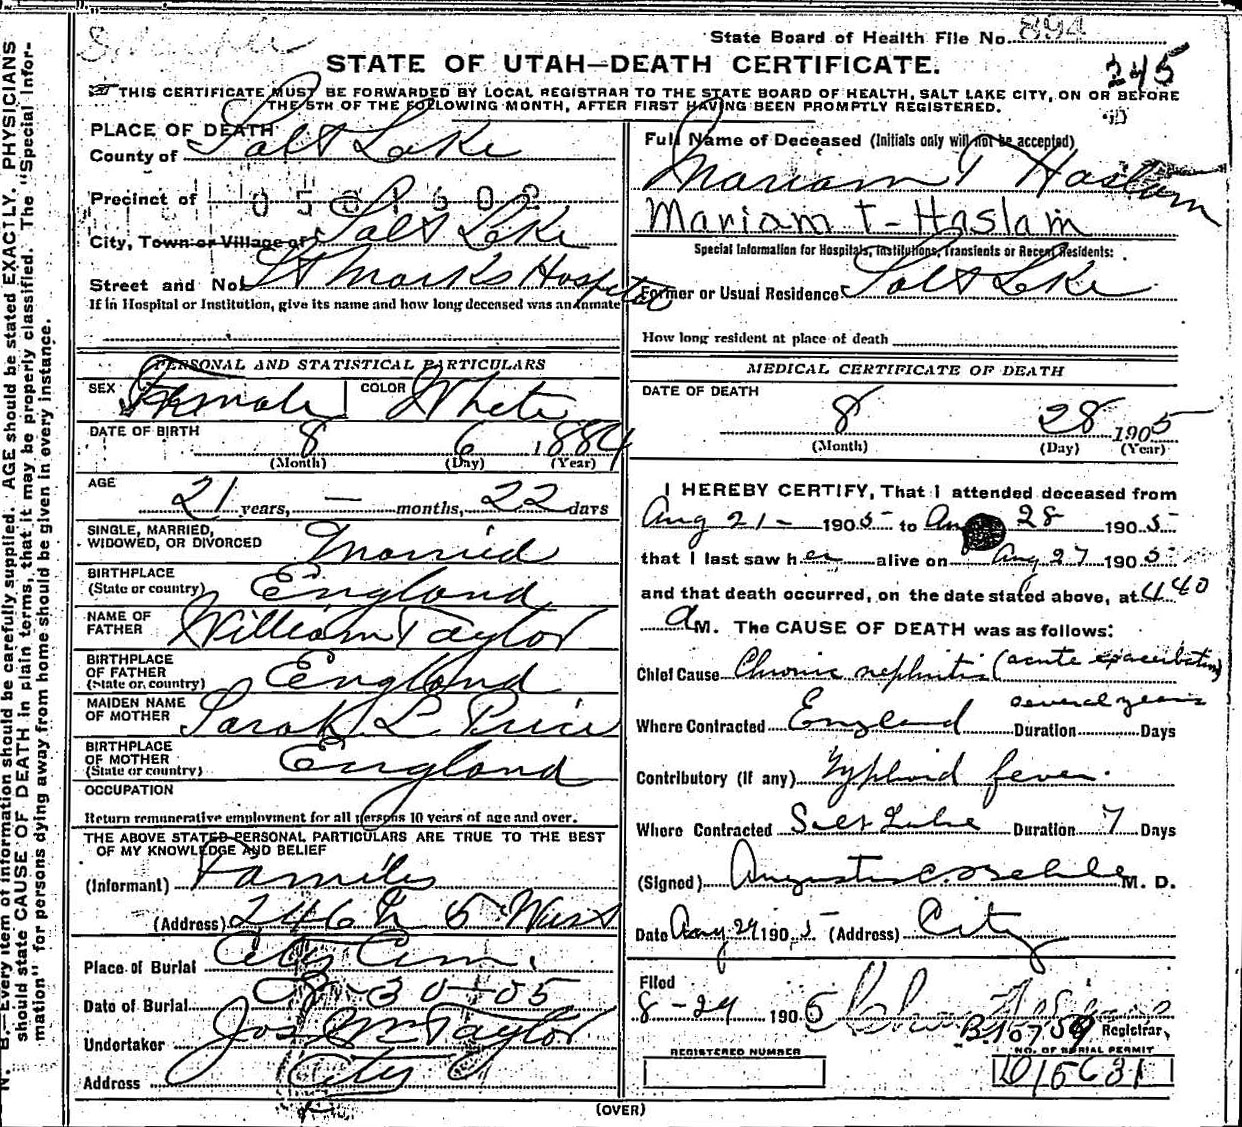 State Board of Health File No. 894
STATE OF UTAH—DEATH CERTIFICATE.
245
THIS CERTIFICATE MUST BE FORWARDED BY LOCAL REGISTRAR TO THE STATE BOARD OF HEALTH, SALT LAKE CITY, ON OR BEFORE
THE 5TH OF THE FOLLOWING MONTH, AFTER FIRST HAVING BEEN PROMPTLY REGISTERED.
PLACE OF DEATH
County of Salt Lake
Precinct of 0501602
City, Town or Village of Salt Lake
Street and No. St Marks Hospital
If in Hospital or Institution, give its name and how long deceased was an inmate
PERSONAL AND STATISTICAL PARTICULARS
SEX Female COLOR White
DATE OF BIRTH 8 6 1884
(Month) (Day) (Year)
AGE
21 years, — months, 22 days
SINGLE, MARRIED,
WIDOWED, OR DIVORCED Married
BIRTHPLACE
(State or country) England
NAME OF
FATHER William Taylor
BIRTHPLACE
OF FATHER
(State or country) England
MAIDEN NAME
OF MOTHER Sarah L. Price
BIRTHPLACE
OF MOTHER
(State or country) England
OCCUPATION
Return remunerative employment for all persons 10 years of age and over.
THE ABOVE STATED PERSONAL PARTICULARS ARE TRUE TO THE BEST
OF MY KNOWLEDGE AND BELIEF
(Informant) Family
(Address) 246 N 5 West
Place of Burial City Cem.
Date of Burial 8-30-05
Undertaker Jos Wm Taylor
Address City
Full Name of Deceased (Initials only will not be accepted)
Mariam T Haslam
Mariam T- Haslam
Special Information for Hospitals, Institutions, Transients or Recent Residents:
Former or Usual Residence Salt Lake
How long resident at place of death
MEDICAL CERTIFICATE OF DEATH
DATE OF DEATH
8 28 1905
(Month) (Day) (Year)
I HEREBY CERTIFY, That I attended deceased from
Aug 21- 1905 to Aug 28 1905
that I last saw her alive on Aug 27 1905
and that death occurred, on the date stated above, at 4.40
a M. The CAUSE OF DEATH was as follows:
Chief Cause Chronic nephritis (acute exacerbation)
several years
Where Contracted England Duration Days
Contributory (if any) Typhoid fever.
Where Contracted Salt Lake Duration 7 Days
(Signed) Augustus C. Behle M. D.
Date Aug 29 1905 (Address) City
Filed
8-29 1905
Registrar.
REGISTERED NUMBER
NO. OF BURIAL PERMIT
(OVER)
N. B.—Every item of information should be carefully supplied. AGE should be stated EXACTLY. PHYSICIANS
should state CAUSE OF DEATH in plain terms, that it may be properly classified. The "Special Infor-
mation" for persons dying away from home should be given in every instance.